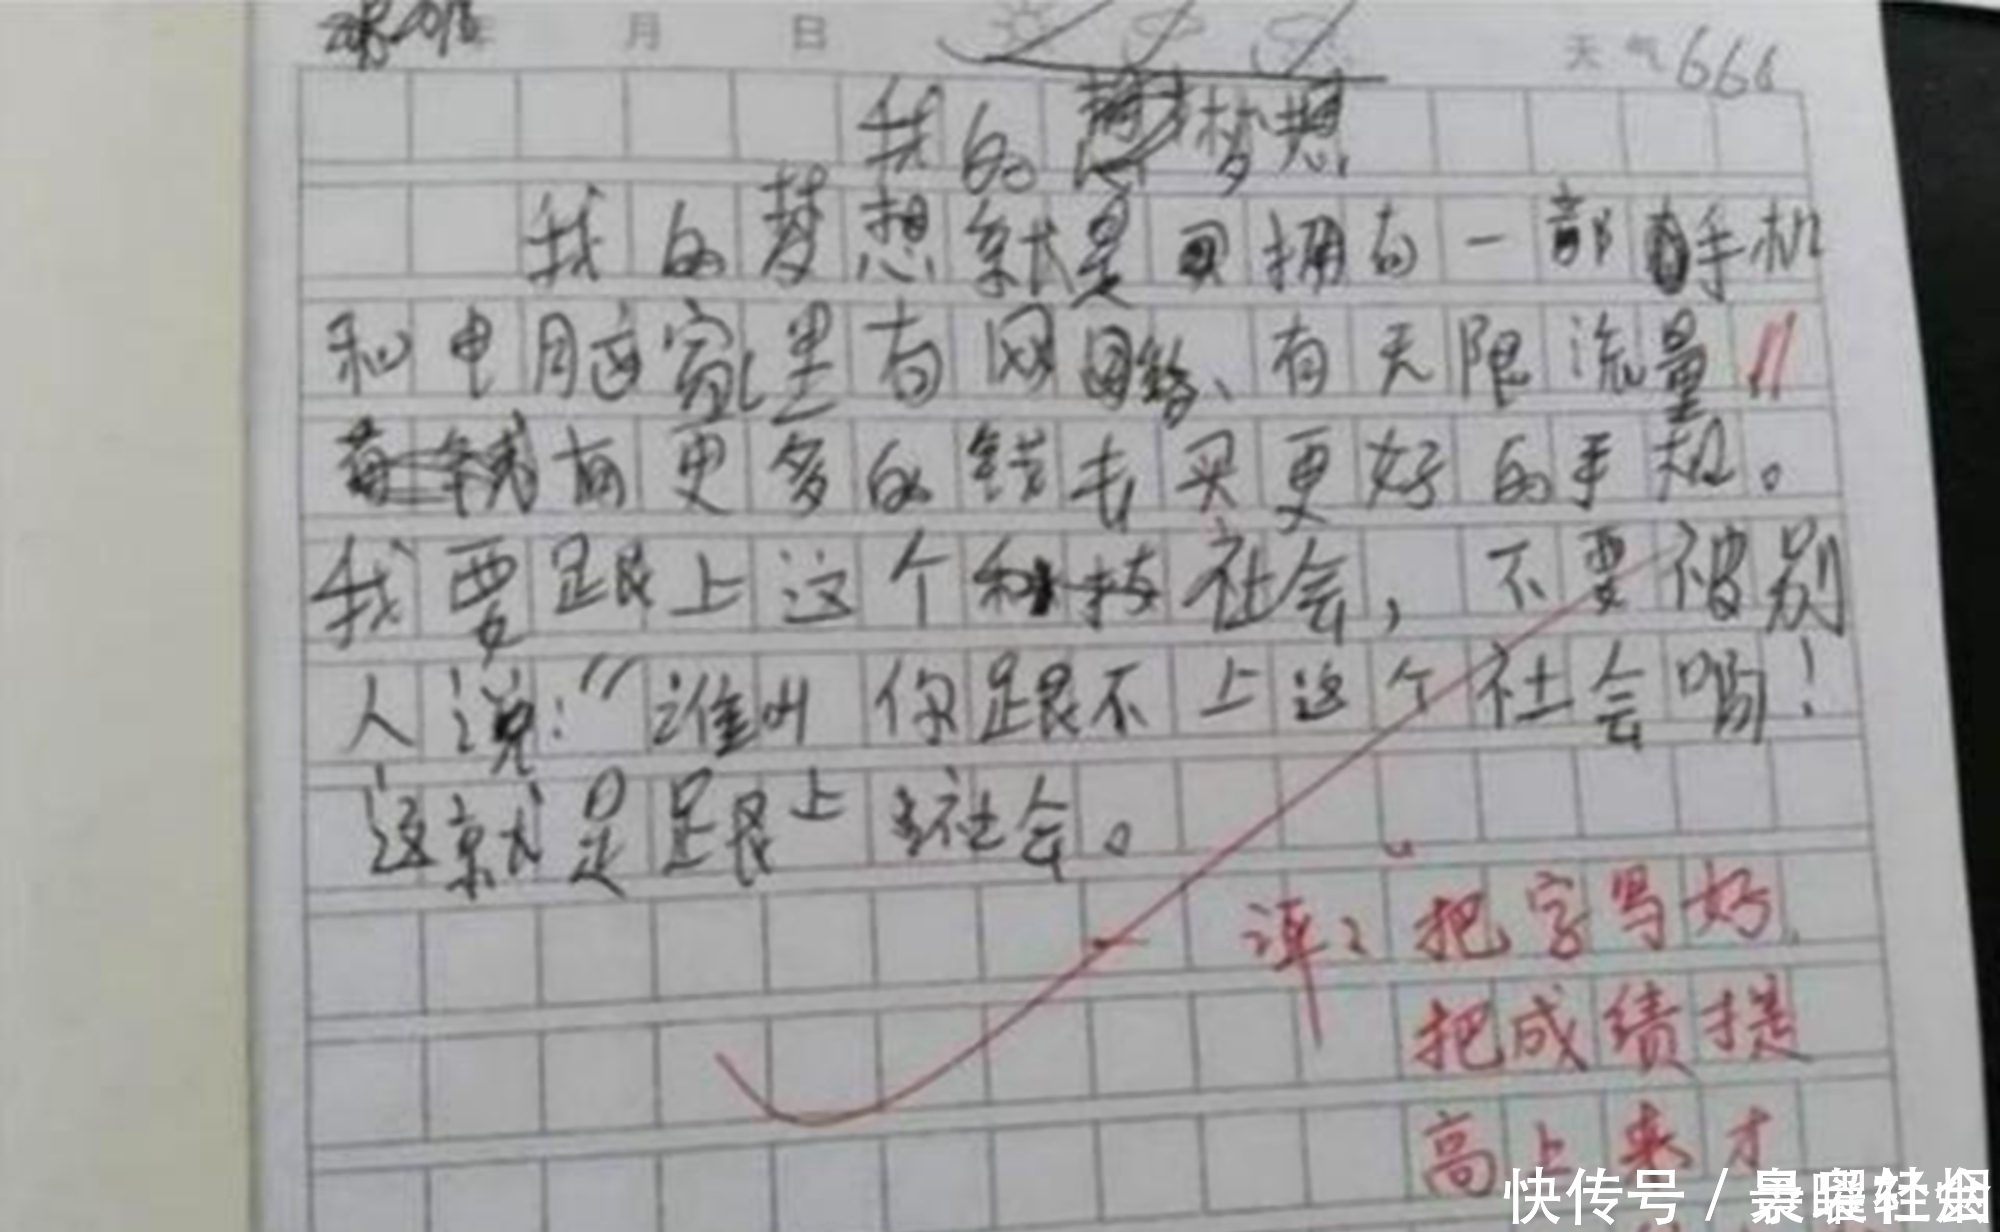 2018年 月 日 天气666
我的梦想
我的梦想就是买拥有一部手机
和电脑这家里有网网络、有无限流量
有更多的钱去买更好的手机。
我要跟上这个科技社会，不要被别
人说：“谁叫你跟不上这个社会哟！
这就是跟上社会。
评：把字写好，
把成绩提
高上来才
快传号／景曜轻烟